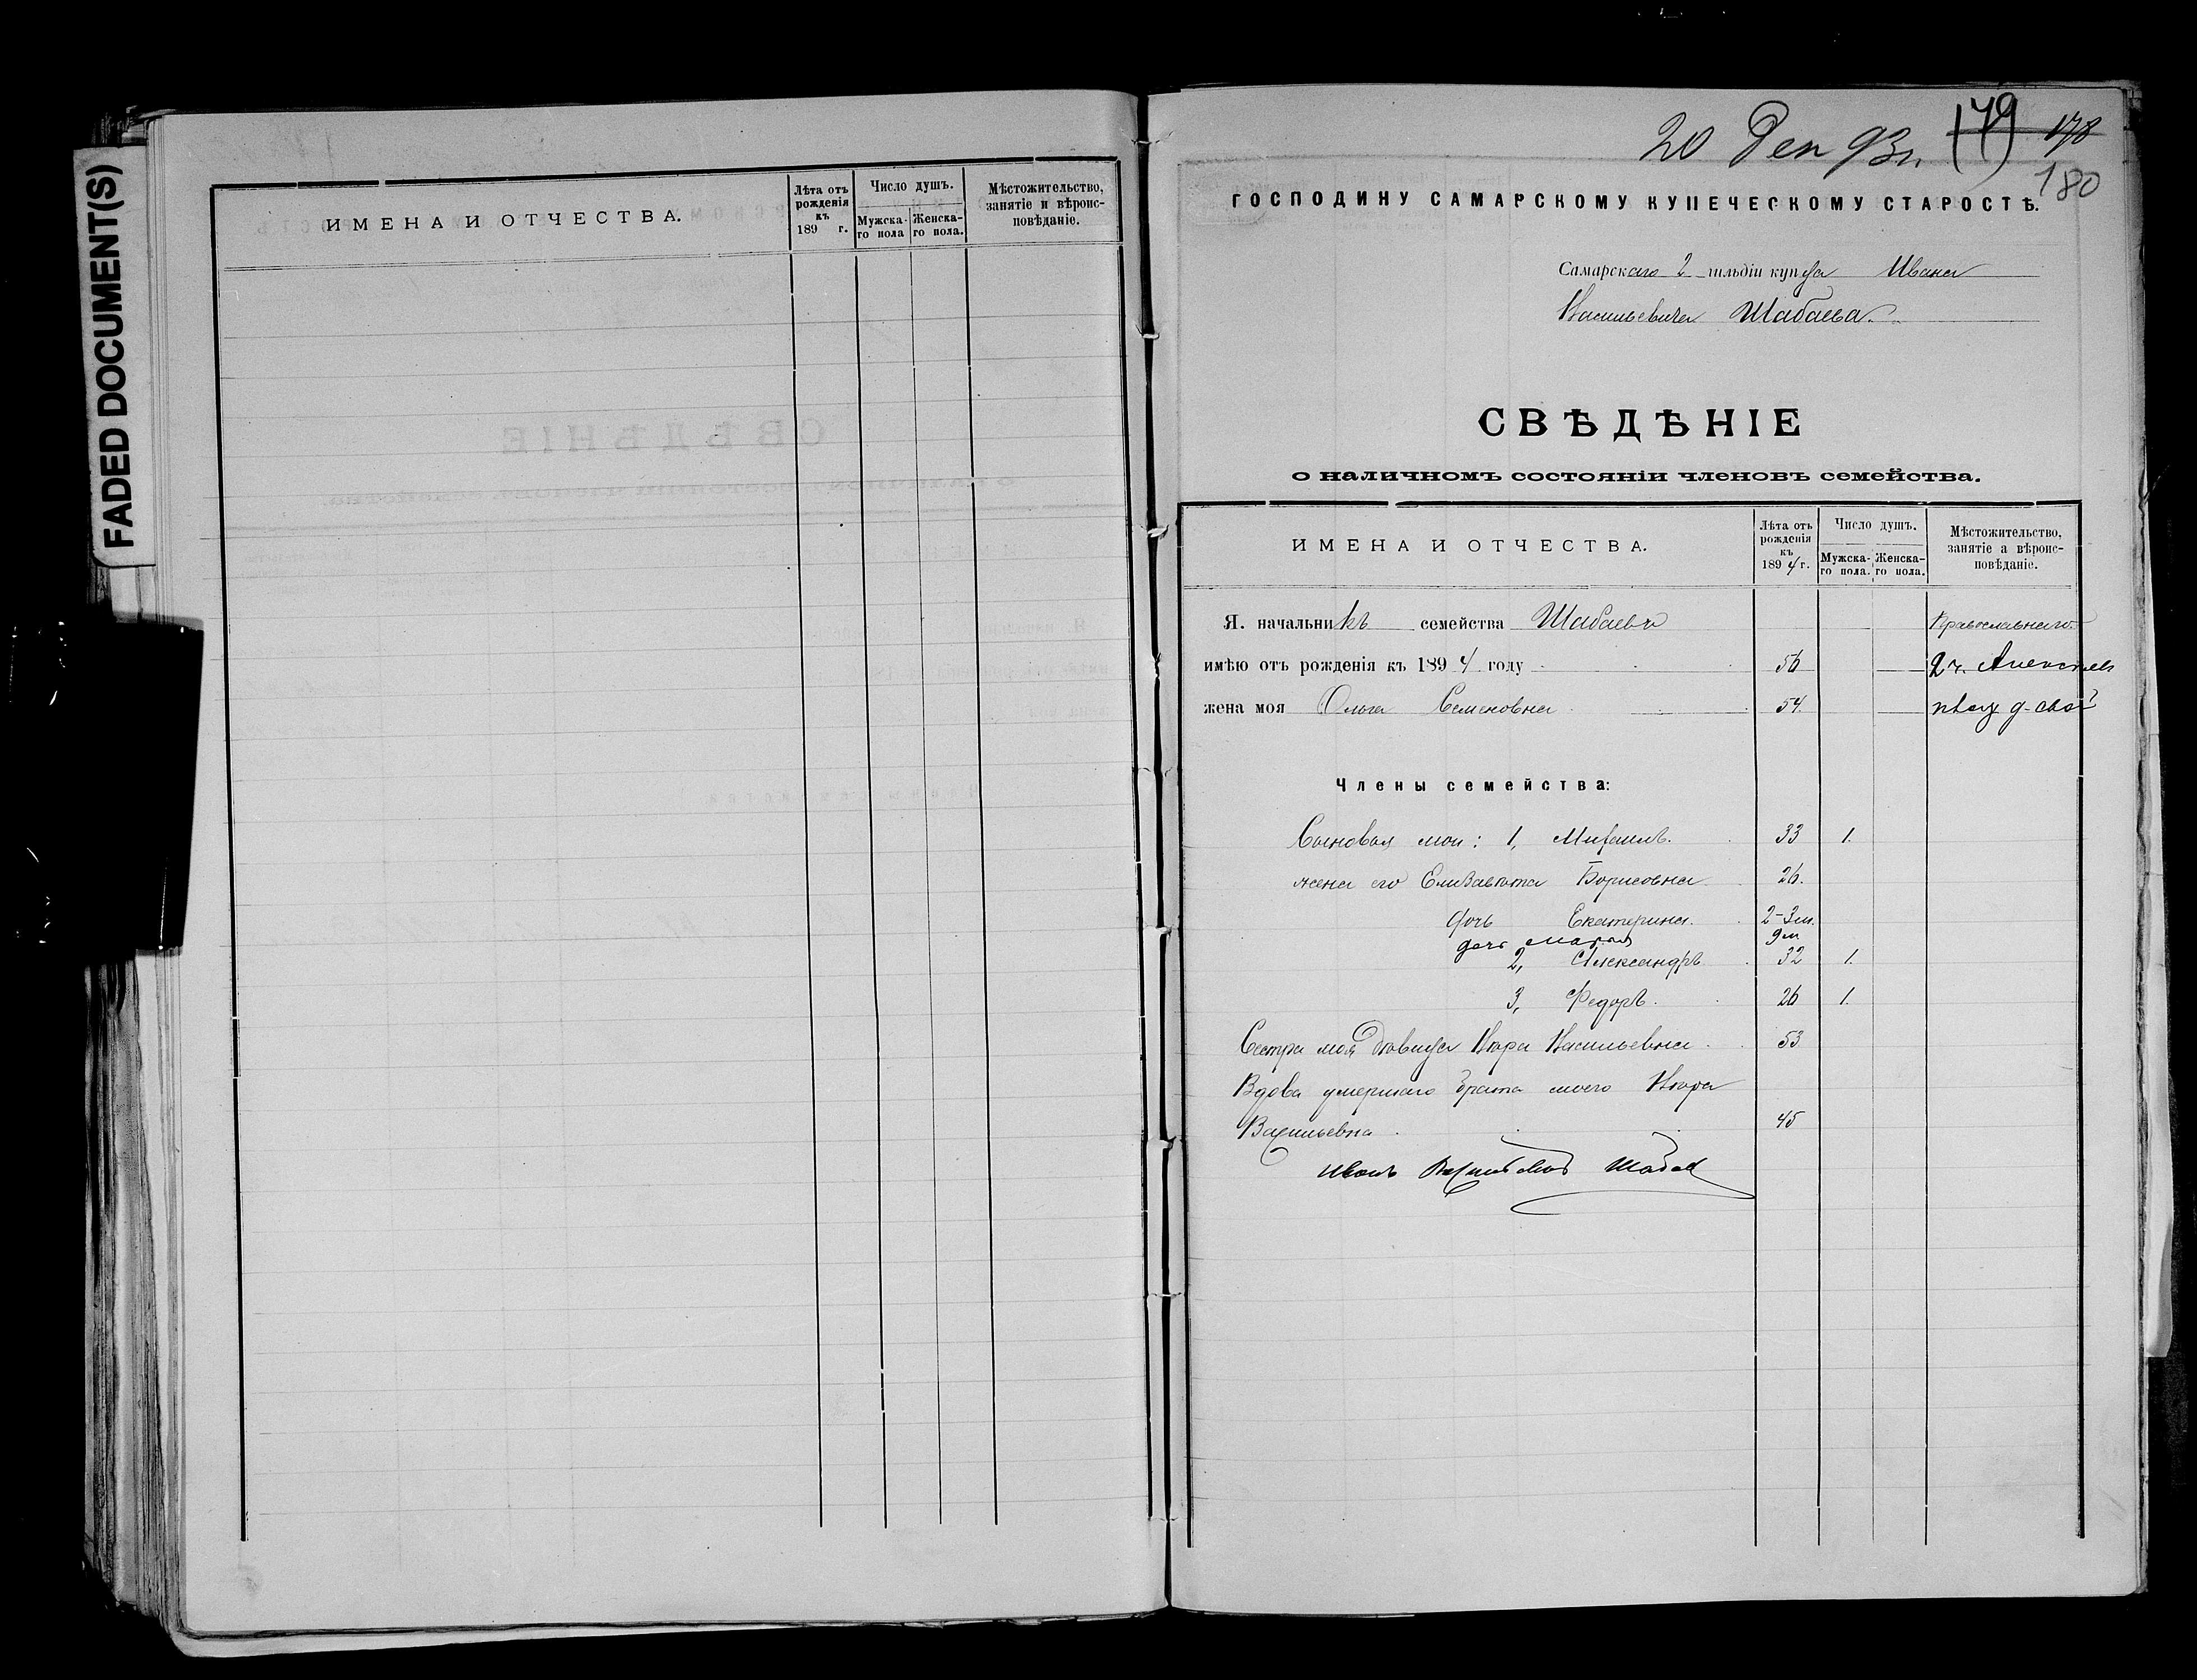 FADED DOCUMENT(S)
ИМЕНА И ОТЧЕСТВА.
Лѣта отъ рожденія къ 189 г.
Число душъ.
Мужска-го пола
Женска-го пола.
Мѣстожительство, занятіе и вѣроис-повѣданіе.
20 Дек 93 г. 179 178
180
ГОСПОДИНУ САМАРСКОМУ КУПЕЧЕСКОМУ СТАРОСТѢ.
Самарскаго 2 гильдіи купца Ивана
Васильевича Шабаева.
СВѢДѢНІЕ
о наличномъ состояніи членовъ семейства.
ИМЕНА И ОТЧЕСТВА.
Лѣта отъ рожденія къ 1894 г.
Число душъ.
Мужска-го пола.
Женска-го пола.
Мѣстожительство, занятіе а вѣроис-повѣданіе.
Я. начальникъ семейства Шабаевъ Православнаго
имѣю отъ рожденія къ 1894 году 56 2 ч.
жена моя Ольга Семеновна 54.
Члены семейства:
Сыновья мои: 1, Михаилъ. 33 1.
жена его Елизавета Борисовна 26.
дочь Екатерина. 2-3 м.
дочь Мария 9 м
2, Александръ 32 1.
3, Федоръ. 26 1.
Сестра моя дѣвица Вѣра Васильевна. 53
Вдова умершаго брата моего Вѣра
Васильевна. 45
Иванъ Васильевъ Шабаев